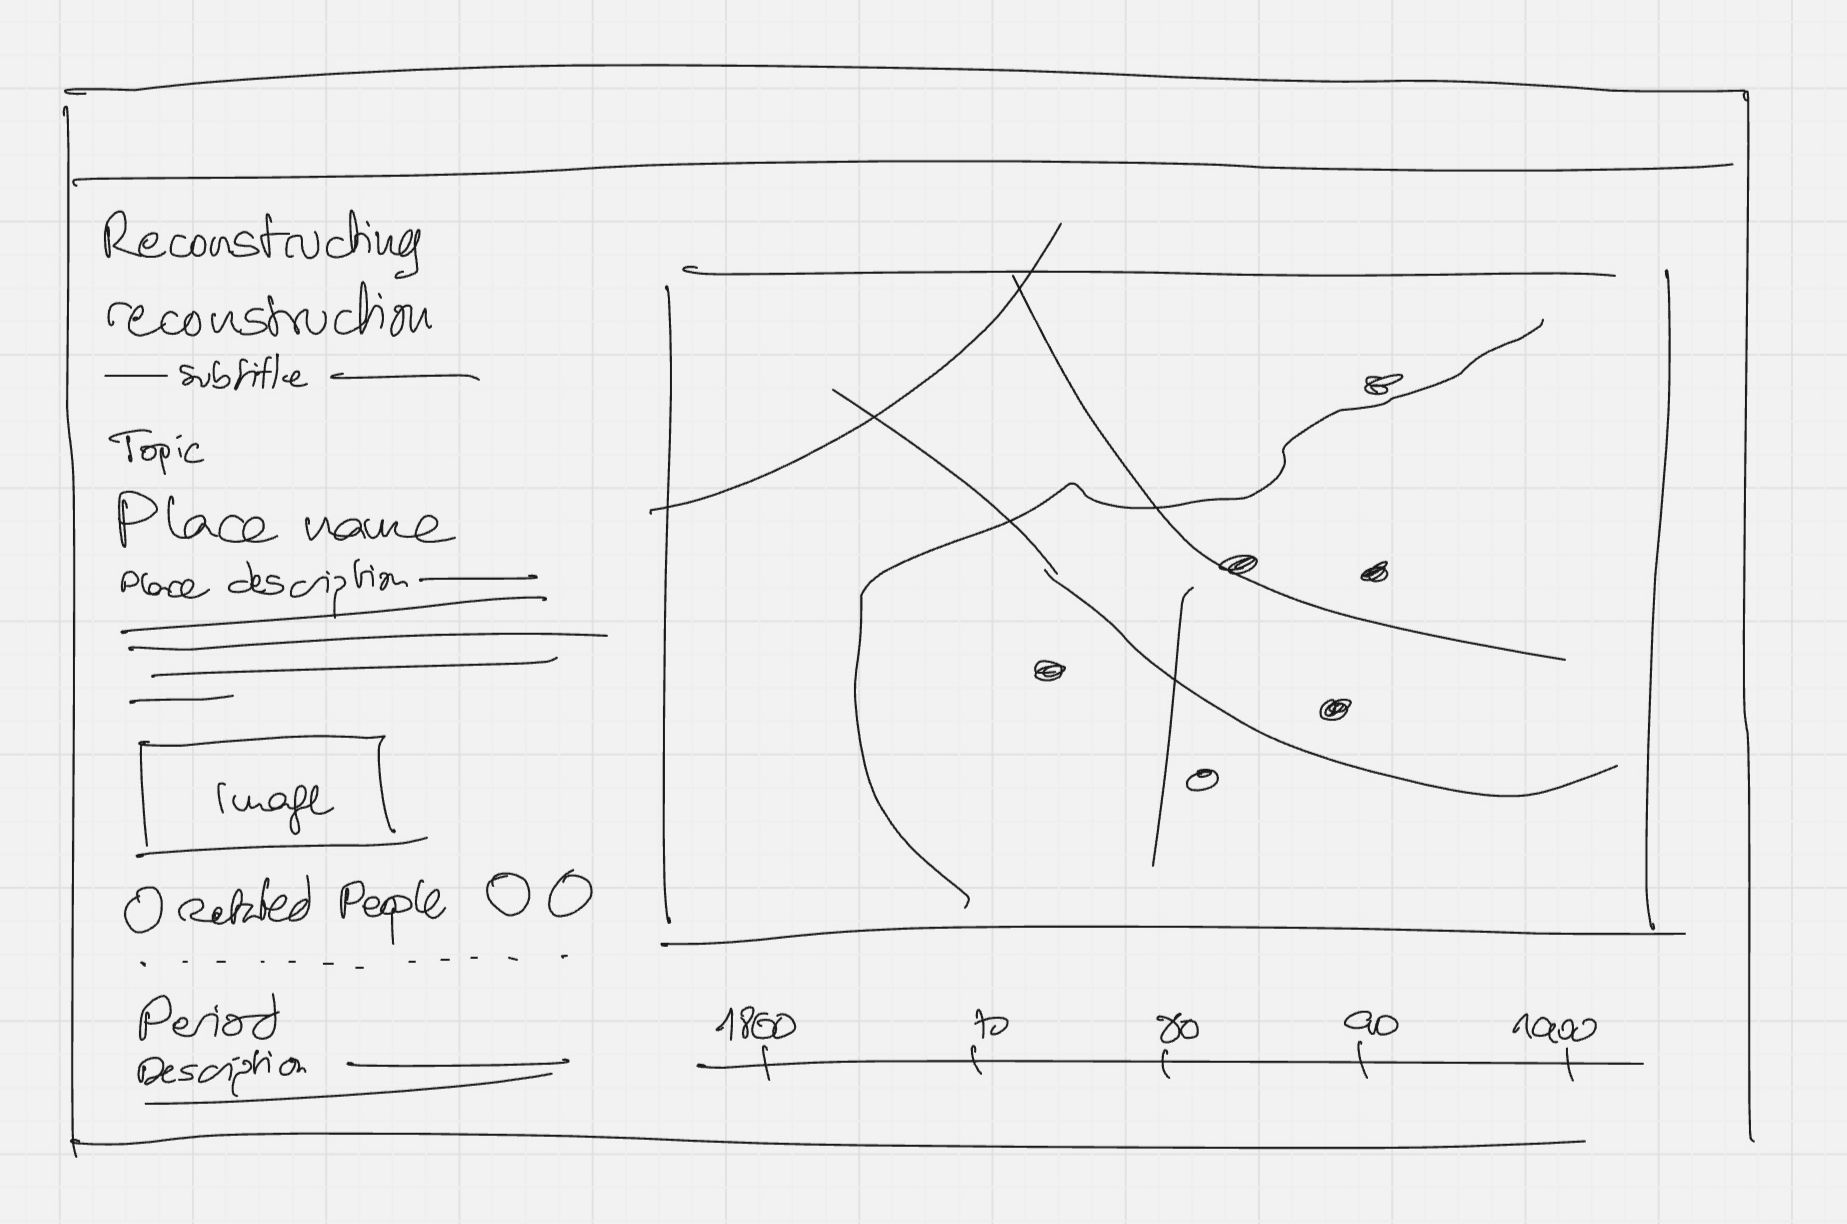 Reconstructing
reconstruction
subtitle
Topic
Place name
Place description
Image
related People
Period
Description
1860 70 80 90 1900